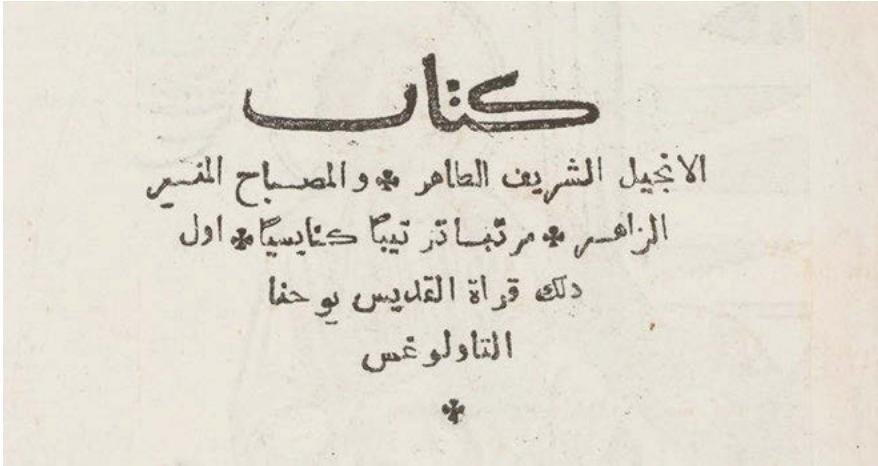 كتاب
الانجيل الشريف الطاهر ✤ والمصباح المنير
الزاهر ✤ مرتبا ترتيبا كنايسيا ✤ اول
دلك قراة القديس يوحنا
التاولوغس
✤